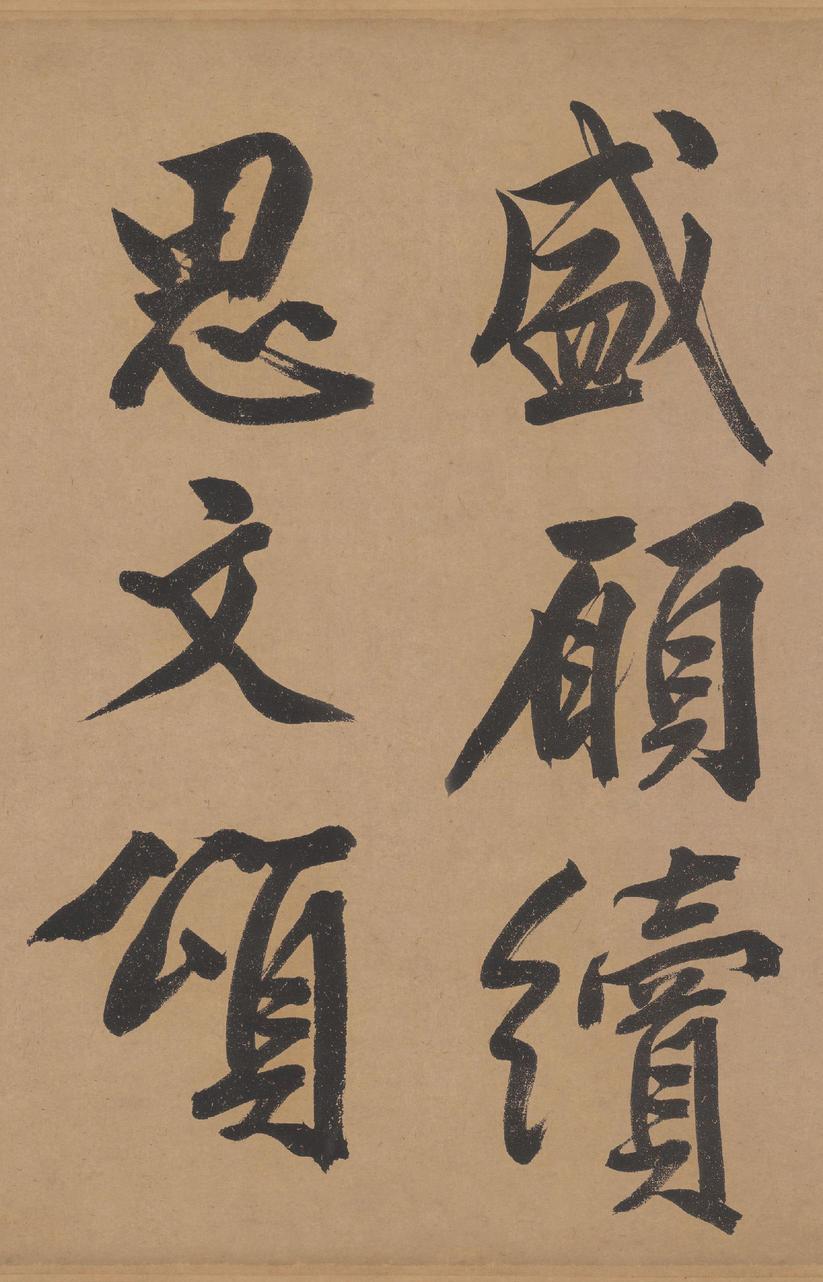 盛願續
思文頌